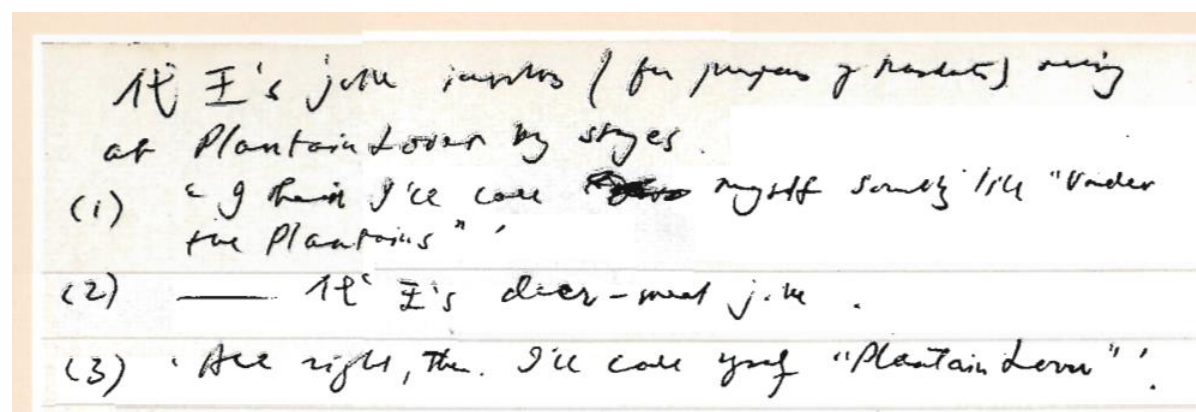 代玉's joke involves (for purposes of translation) arriving
at Plantain Lover by stages.
(1) ‘I think I'll call myself something like "Under
the Plantains"’
(2) —— 代玉's deer-meat joke.
(3) ‘All right, then. I'll call myself "Plantain Lover"’.